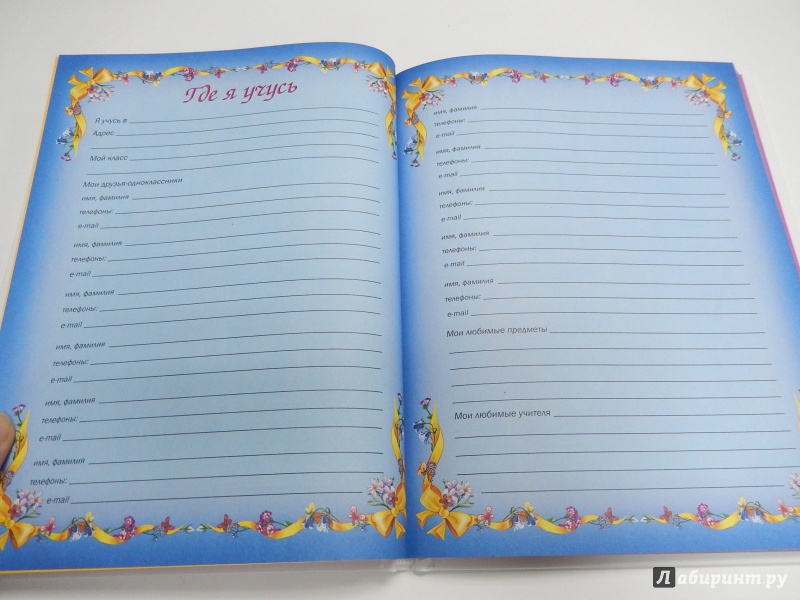 Где я учусь
Я учусь в
Адрес
Мой класс
Мои друзья-одноклассники
имя, фамилия
телефоны:
e-mail
имя, фамилия
телефоны:
e-mail
имя, фамилия
телефоны:
e-mail
имя, фамилия
телефоны:
e-mail
имя, фамилия
телефоны:
e-mail
имя, фамилия
телефоны:
e-mail
имя, фамилия
телефоны:
e-mail
имя, фамилия
телефоны:
e-mail
имя, фамилия
телефоны:
e-mail
имя, фамилия
телефоны:
e-mail
имя, фамилия
телефоны:
e-mail
Мои любимые предметы
Мои любимые учителя
Лабиринт.ру